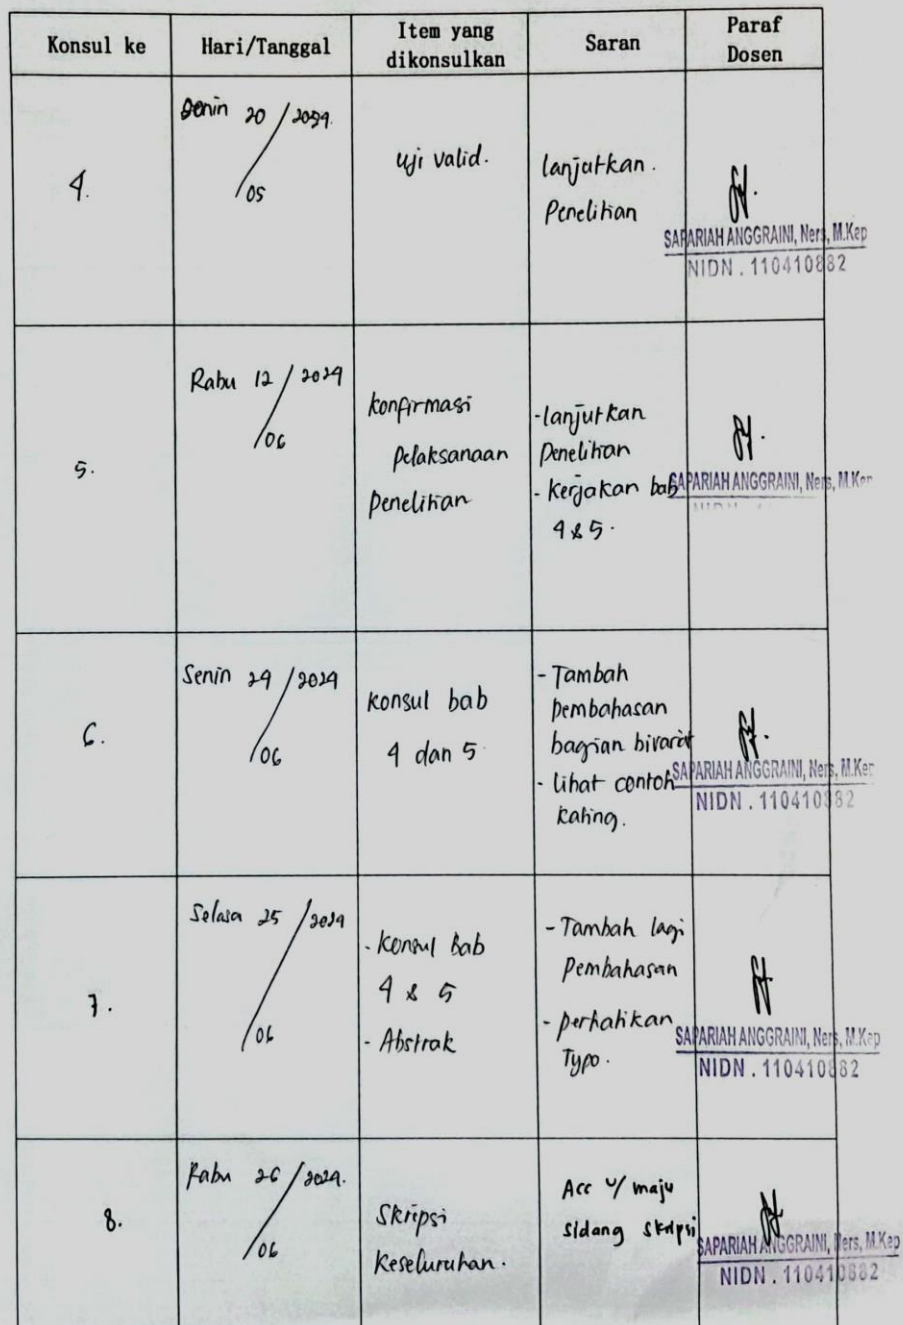 Konsul ke Hari/Tanggal Item yang dikonsulkan Saran Paraf Dosen
4.
Senin 20/05/2024.
uji valid.
lanjutkan.
Penelitian
SAPARIAH ANGGRAINI, Ners, M.Kep
NIDN . 110410882
5.
Rabu 12/06/2024
konfirmasi
pelaksanaan
penelitian
- lanjutkan
penelitian
- kerjakan bab
4 & 5.
SAPARIAH ANGGRAINI, Ners, M.Kep
6.
Senin 24/06/2024
konsul bab
4 dan 5
- Tambah
pembahasan
bagian bivariat
- lihat contoh
kating.
SAPARIAH ANGGRAINI, Ners, M.Kep
NIDN . 110410882
7.
Selasa 25/06/2024
- konsul bab
4 & 5
- Abstrak
- Tambah lagi
pembahasan
- perhatikan
Typo.
SAPARIAH ANGGRAINI, Ners, M.Kep
NIDN . 110410882
8.
Rabu 26/06/2024.
Skripsi
Keseluruhan.
Acc u/ maju
sidang skripsi
SAPARIAH ANGGRAINI, Ners, M.Kep
NIDN . 110410882